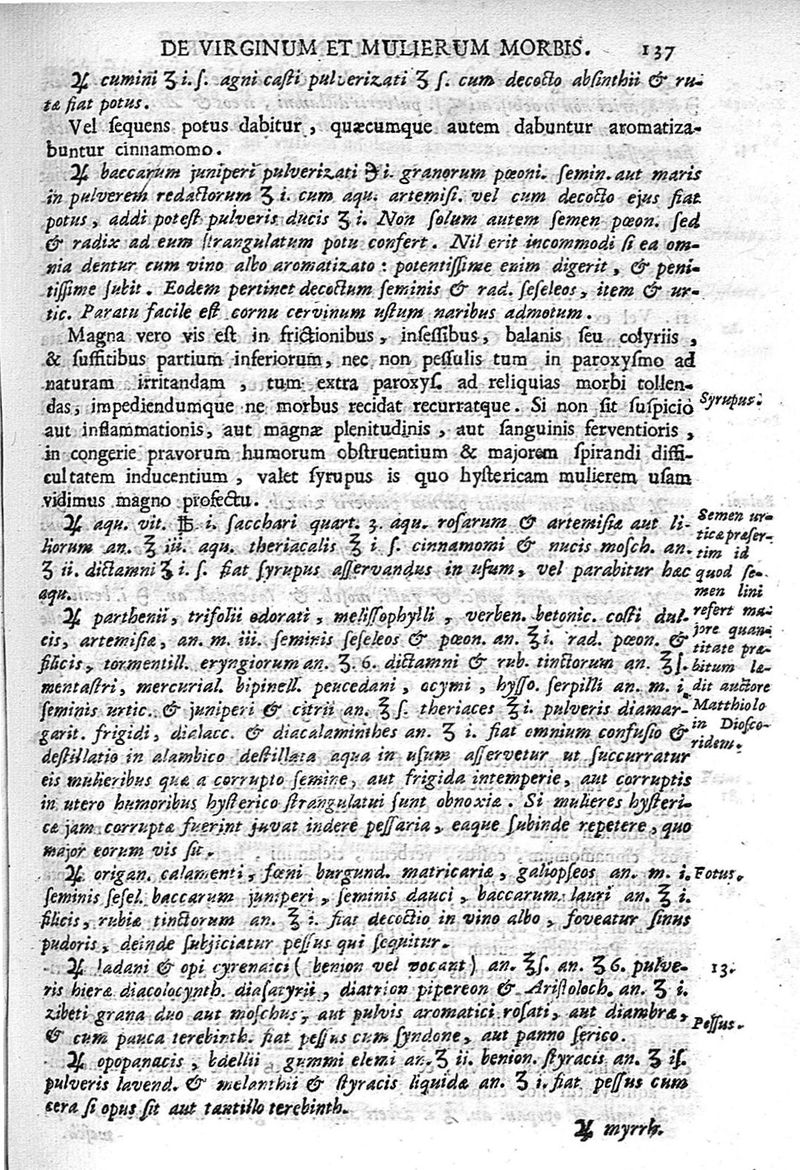 DE VIRGINUM ET MULIERUM MORBIS. 137
℞ cumini ʒ i. ſ. agni caſti pulverizati ʒ ſ. cum decocto abſinthii & ru-
tæ fiat potus.
Vel ſequens potus dabitur, quæcumque autem dabuntur aromatiza-
buntur cinnamomo.
℞ baccarum juniperi pulverizati ℈ i. granorum pœoni. ſemin. aut maris
in pulverem redactorum ʒ i. cum aqu. artemiſi. vel cum decocto ejus fiat
potus, addi poteſt pulveris ducis ʒ i. Non ſolum autem ſemen pœon. ſed
& radix ad eum ſtrangulatum potu confert. Nil erit incommodi ſi ea om-
nia dentur cum vino albo aromatizato: potentiſſime enim digerit, & peni-
tiſſime ſubit. Eodem pertinet decoctum ſeminis & rad. ſeſeleos, item & ur-
tic. Paratu facile eſt cornu cervinum uſtum naribus admotum.
Magna vero vis eſt in frictionibus, inſeſſibus, balanis ſeu colyriis,
& ſuffitibus partium inferiorum, nec non peſſulis tum in paroxyſmo ad
naturam irritandam, tum extra paroxyſ. ad reliquias morbi tollen-
das, impediendumque ne morbus recidat recurratque. Si non ſit ſuſpicio
Syrupus.
aut inflammationis, aut magnæ plenitudinis, aut ſanguinis ferventioris,
in congerie pravorum humorum obſtruentium & majorem ſpirandi diffi-
cultatem inducentium, valet ſyrupus is quo hyſtericam mulierem uſam
vidimus magno profectu.
℞ aqu. vit. ℔ i. ſacchari quart. 3. aqu. roſarum & artemiſiæ aut li-
liorum an. ℥ iii. aqu. theriacalis ℥ i ſ. cinnamomi & nucis moſch. an.
ʒ ii. dictamni ʒ i. ſ. fiat ſyrupus aſſervandus in uſum, vel parabitur hæc
aqu.
Semen ur-
ticæ præſer-
tim id
quod ſe-
men lini
refert ma-
jore quan-
titate præ-
bitum læ-
dit auctore
Matthiolo
in Dioſco-
ridem.
℞ parthenii, trifolii odorati, meliſſophylli, verben. betonic. coſti dul-
cis, artemiſiæ, an. m. iii. ſeminis ſeſeleos & pœon. an. ℥ i. rad. pœon. &
filicis, tormentill. eryngiorum an. ʒ. 6. dictamni & rub. tinctorum an. ℥ ſ.
mentaſtri, mercurial. bipinell. peucedani, ocymi, hyſſo. ſerpilli an. m. i.
ſeminis urtic. & juniperi & citrii an. ℥ ſ. theriaces ℥ i. pulveris diamar-
garit. frigidi, dialacc. & diacalaminthes an. ʒ i. fiat omnium confuſio &
deſtillatio in alambico deſtillata aqua in uſum aſſervetur ut ſuccurratur
eis mulieribus quæ a corrupto ſemine, aut frigida intemperie, aut corruptis
in utero humoribus hyſterico ſtrangulatui ſunt obnoxiæ. Si mulieres hyſteri-
cæ jam corruptæ fuerint juvat indere peſſaria, eaque ſubinde repetere, quo
major eorum vis ſit.
℞ origan. calamenti, fœni burgund. matricariæ, galiopſeos an. m. i.
Fotus.
ſeminis ſeſel. baccarum juniperi, ſeminis dauci, baccarum lauri an. ℥ i.
filicis, rubiæ tinctorum an. ℥ i. fiat decoctio in vino albo, foveatur ſinus
pudoris, deinde ſubjiciatur peſſus qui ſequitur.
℞ ladani & opi cyrenaici ( benion vel vocant ) an. ℥ ſ. an. ʒ 6. pulve-
13.
ris hieræ diacolocynth. diaſatyrii, diatrion pipereon & Ariſtoloch. an. ʒ i.
zibeti grana duo aut moſchus, aut pulvis aromatici roſati, aut diambræ,
Peſſus.
& cum pauca terebinth. fiat peſſus cum ſyndone, aut panno ſerico.
℞ opopanacis, bdellii, gummi elemi an. ʒ ii. benion. ſtyracis an. ʒ iſ.
pulveris lavend. & melanthii & ſtyracis liquidæ an. ʒ i. fiat peſſus cum
cera ſi opus ſit aut tantillo terebinth.
℞ myrrh.